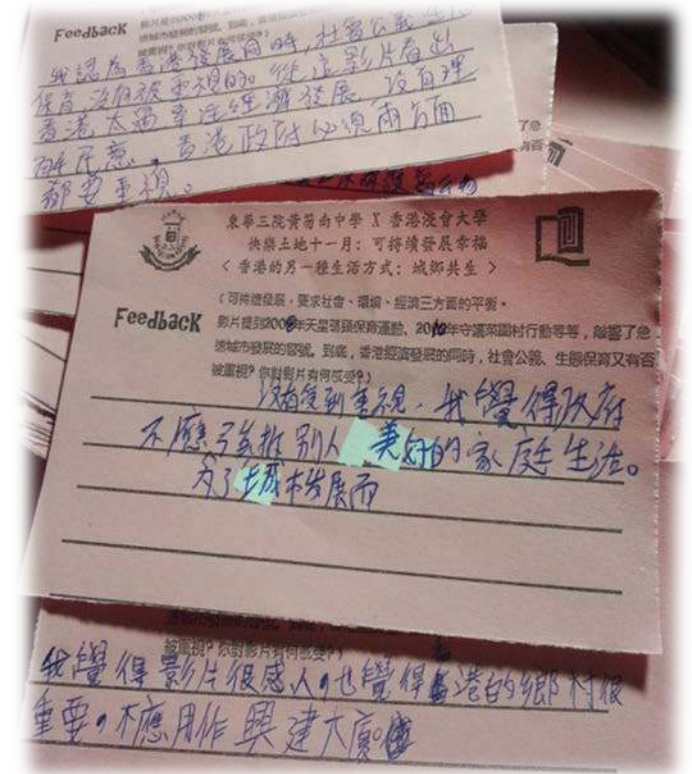 Feedback
影片提到200
我認為香港發展同時,社會公義
保育沒有被重視的。從這影片看出
香港太過專注經濟發展,沒有理
民意,香港政府必須兩方面
都要重視。
東華三院黃笏南中學 X 香港浸會大學
快樂土地十一月:可持續發展幸福
< 香港的另一種生活方式:城鄉共生 >
Feedback
(可持續發展,要求社會、環境、經濟三方面的平衡。
影片提到2006年天星碼頭保育運動、2010年守護菜園村行動等等,敲響了急
速城市發展的警號。到底,香港經濟發展的同時,社會公義、生態保育又有否
被重視?你對影片有何感受?)
沒有受到重視,我覺得政府
不應強推別人美好的家庭生活。
為了城市發展而
被重視?你對影片有何感受?)
我覺得影片很感人,也覺得香港的鄉村很
重要,不應用作興建大廈。